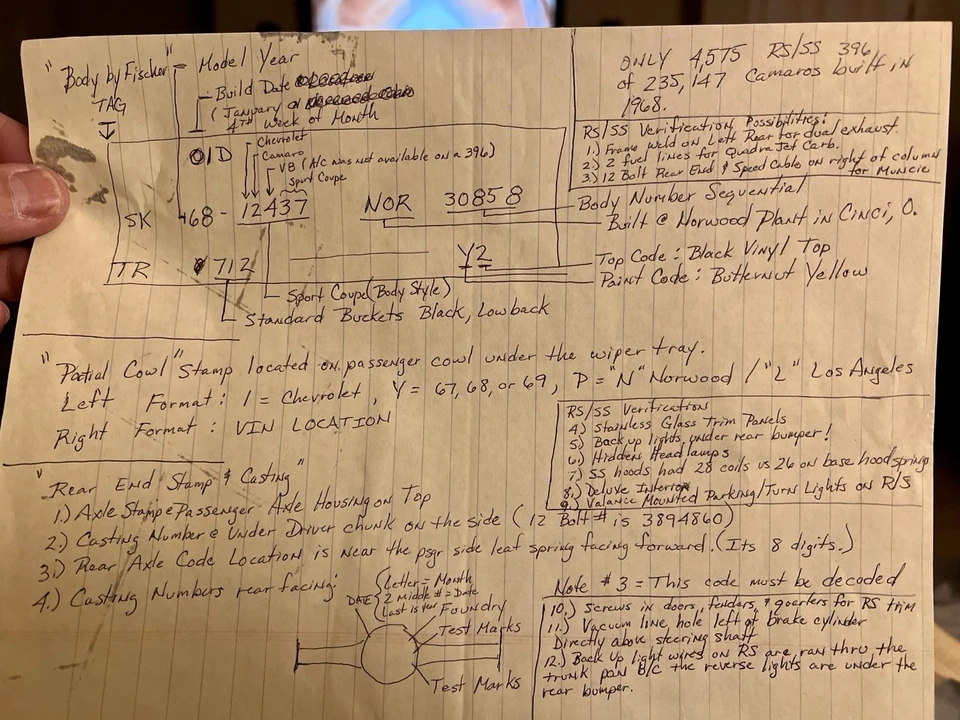 "Body by Fischer" = Model Year
TAG
Build Date
(January 01
4TH week of Month
ONLY 4,575 RS/SS 396
of 235,147 Camaros built in
1968.
RS/SS Verification Possibilities:
1.) Frame weld on Left Rear for dual exhaust.
2.) 2 fuel lines for QuadraJet Carb.
3) 12 Bolt Rear End & Speed Cable on right of column
for Muncie
01D
Chevrolet
Camaro
V8 (A/C was not available on a 396)
Sport Coupe
SK 68-12437 NOR 30858
Body Number Sequential
Built @ Norwood Plant in Cinci, O.
TR 712 Y2
Top Code: Black Vinyl Top
Paint Code: Butternut Yellow
Sport Coupe (Body Style)
Standard Buckets Black, Lowback
"Partial Cowl" Stamp located on passenger cowl under the wiper tray.
Left Format: 1 = Chevrolet, Y = 67, 68, or 69, P = "N" Norwood / "L" Los Angeles
Right Format: VIN LOCATION
RS/SS Verification
4) Stainless Glass Trim Panels
5.) Back up lights under rear bumper!
6.) Hidden Headlamps
7) SS hoods had 28 coils vs 26 on base hood springs
8.) Deluxe Interior
9.) Valance Mounted Parking/Turn Lights on R/S
"Rear End Stamp & Casting"
1.) Axle Stamp @ Passenger Axle Housing on Top
2.) Casting Number @ Under Driver chunk on the side (12 Bolt # is 3894860)
3.) Rear Axle Code Location is near the psgr side leaf spring facing forward. (Its 8 digits.)
4.) Casting Numbers rear facing:
DATE { Letter = Month
2 middle # = Date
Last is year
Foundry
Test Marks
Test Marks
Note #3 = This code must be decoded
10.) Screws in doors, fenders, & quarters for RS trim
11.) Vacuum line hole left of brake cylinder
Directly above steering shaft
12.) Back up light wires on RS are ran thru the
trunk pan B/C the reverse lights are under the
rear bumper.